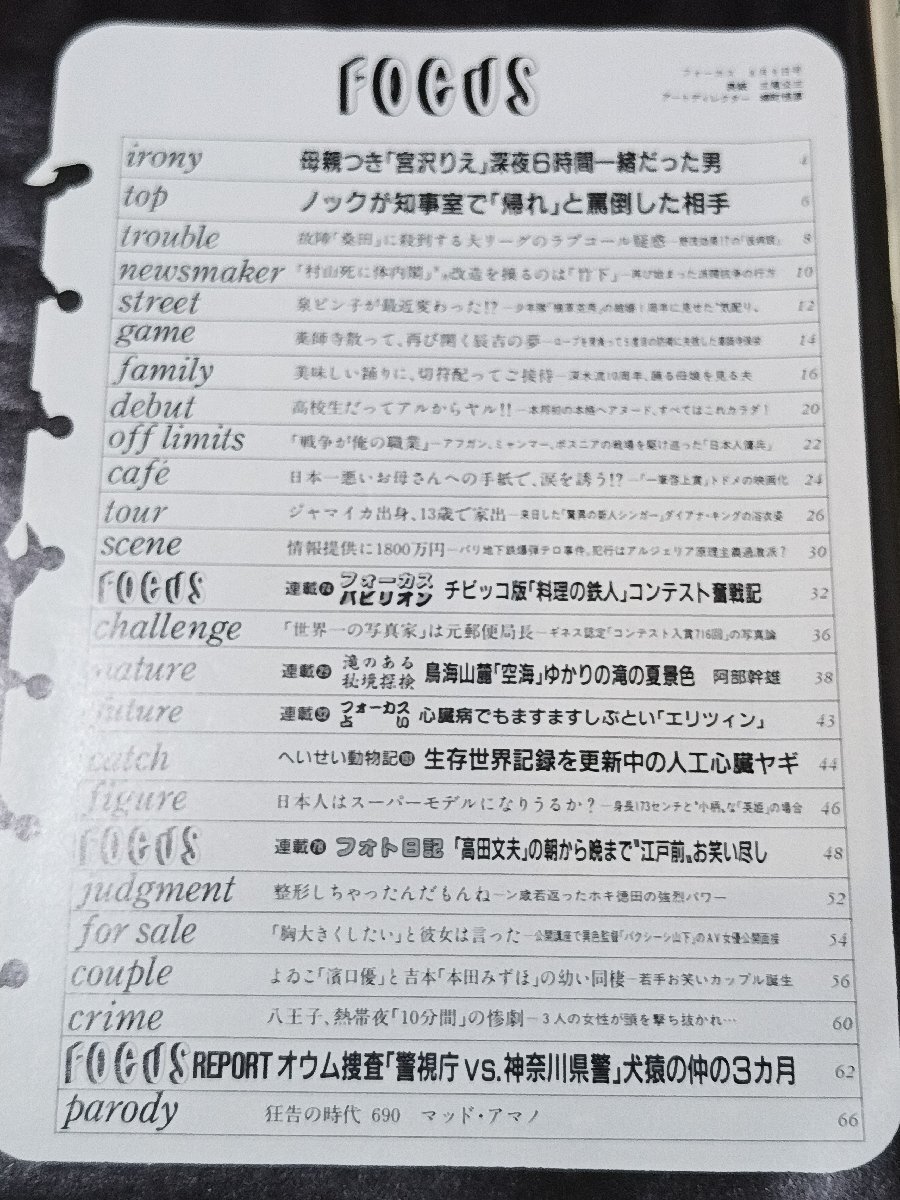 FOCUS
irony 母親つき「宮沢りえ」深夜6時間一緒だった男 4
top ノックが知事室で「帰れ」と罵倒した相手 6
trouble 故障「桑田」に殺到する大リーグのラブコール疑惑 8
newsmaker 「村山死に体内閣」〝改造を操るのは「竹下」 10
street 泉ピン子が最近変わった!? 12
game 薬師寺散って、再び開く辰吉の夢 14
family 美味しい踊りに、切符配ってご接待 16
debut 高校生だってアルからヤル!!―本邦初の本格ヘアヌード、すべてはこれカラダ! 20
off limits 「戦争が俺の職業」―アフガン、ミャンマー、ボスニアの戦場を駆け巡った「日本人傭兵」 22
café 日本一悪いお母さんへの手紙で、涙を誘う!?―「一筆啓上賞」トドメの映画化 24
tour ジャマイカ出身、13歳で家出―来日した「驚異の新人シンガー」ダイアナ・キングの浴衣姿 26
scene 情報提供に1800万円―パリ地下鉄爆弾テロ事件、犯行はアルジェリア原理主義過激派? 30
FOCUS 連載 フォーカスパビリオン チビッコ版「料理の鉄人」コンテスト奮戦記 32
challenge 「世界一の写真家」は元郵便局長―ギネス認定「コンテスト入賞716回」の写真論 36
nature 連載 滝のある秘境探検 鳥海山麓「空海」ゆかりの滝の夏景色 阿部幹雄 38
future 連載 フォーカス占い 心臓病でもますますしぶとい「エリツィン」 43
catch へいせい動物記 生存世界記録を更新中の人工心臓ヤギ 44
figure 日本人はスーパーモデルになりうるか?―身長173センチと〝小柄〟な「英姫」の場合 46
FOCUS 連載 フォト日記 「高田文夫」の朝から晩まで〝江戸前〟お笑い尽し 48
judgment 整形しちゃったんだもんね―ン歳若返ったホキ徳田の強烈パワー 52
for sale 「胸大きくしたい」と彼女は言った―公開講座で異色監督「バクシーシ山下」のAV女優公開面接 54
couple よゐこ「濱口優」と吉本「本田みずほ」の幼い同棲―若手お笑いカップル誕生 56
crime 八王子、熱帯夜「10分間」の惨劇―3人の女性が頭を撃ち抜かれ… 60
FOCUS REPORT オウム捜査「警視庁vs.神奈川県警」犬猿の仲の3カ月 62
parody 狂告の時代 690 マッド・アマノ 66